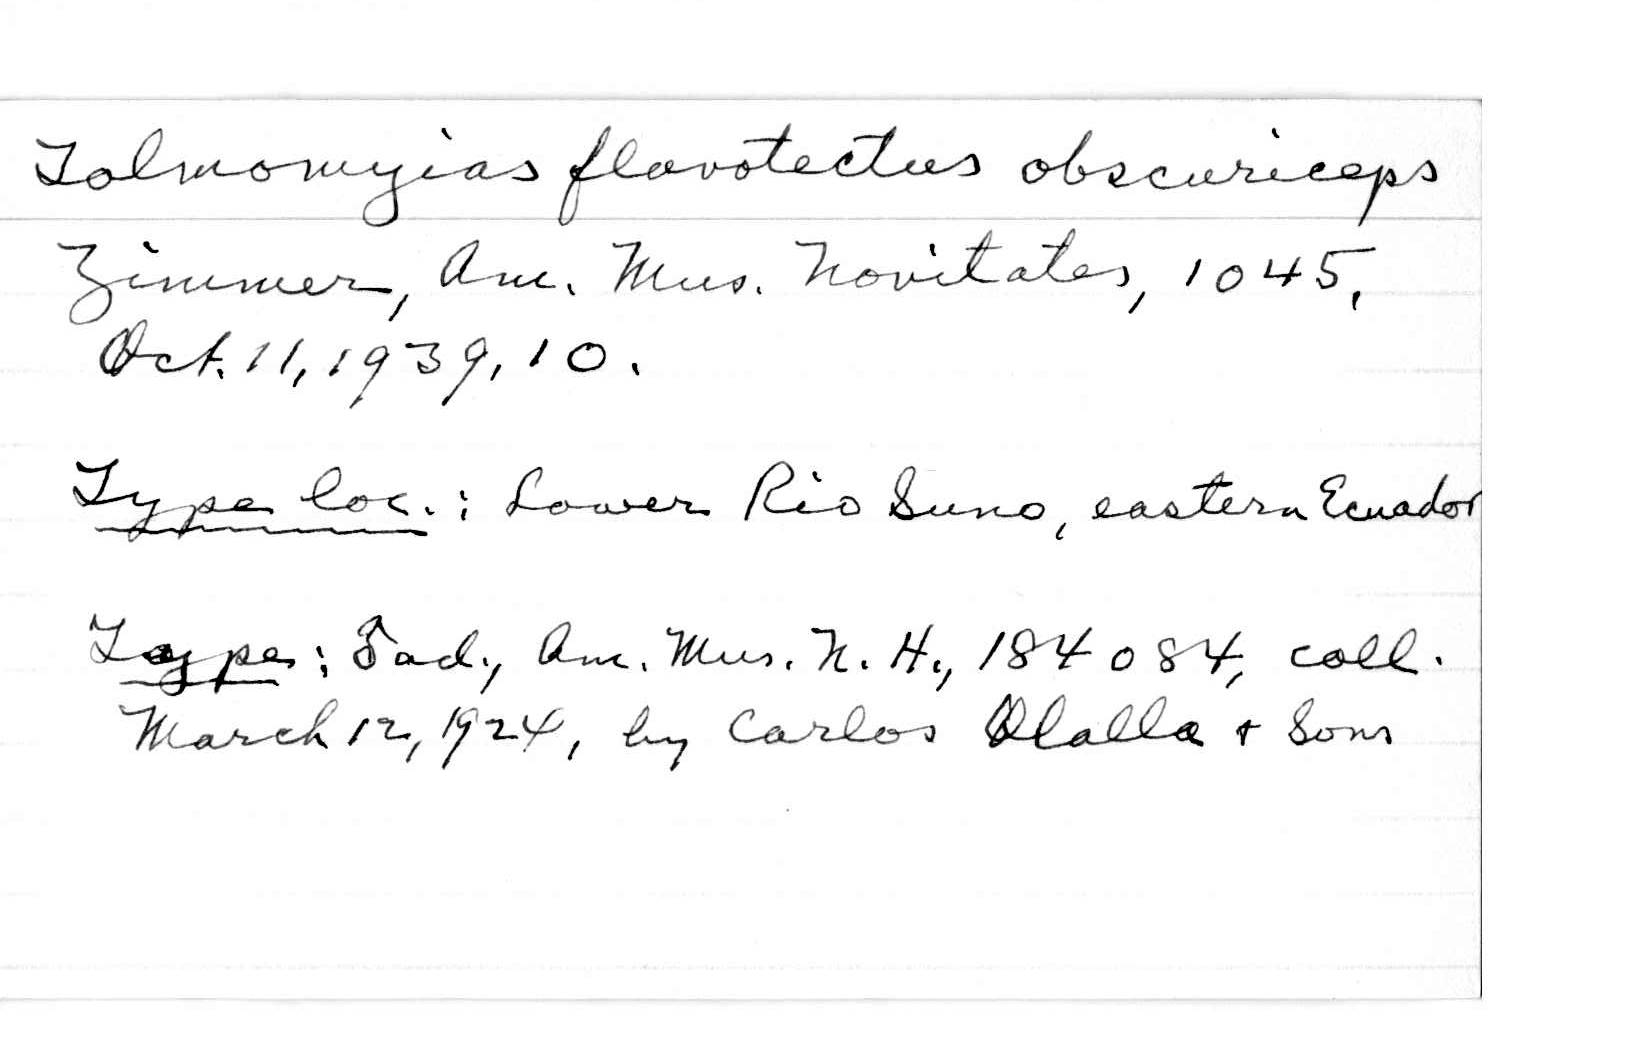 Tolmomyias flavotectus obscuriceps
Zimmer, Am. Mus. Novitates, 1045,
Oct. 11, 1939, 10.
Type loc.: Lower Rio Suno, eastern Ecuador
Type: ♂ ad., Am. Mus. N. H., 184084, coll.
March 12, 1924, by Carlos Olalla + Sons